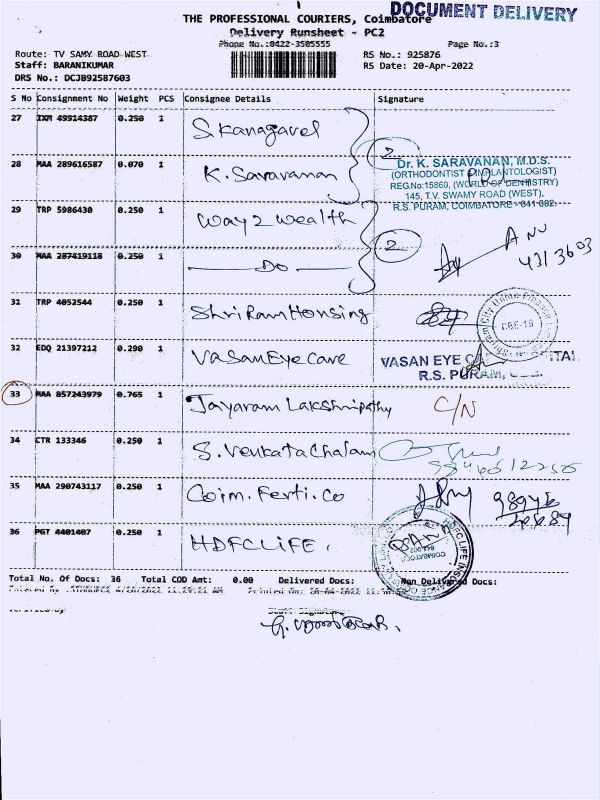 DOCUMENT DELIVERY
THE PROFESSIONAL COURIERS, Coimbatore
Delivery Runsheet - PC2
Phone No.:0422-3505555
Page No.:3
Route: TV SAMY ROAD WEST
RS No.: 925876
Staff: BARANIKUMAR
RS Date: 20-Apr-2022
DRS No.: DCJB92587603
S No Consignment No Weight PCS Consignee Details Signature
27 IXM 49914387 0.250 1 S. Kanagavel
28 MAA 289616587 0.070 1 K. Saravanan
2
Dr. K. SARAVANAN, M.D.S.
(ORTHODONTIST & IMPLANTOLOGIST)
REG.No:15860, (WORLD OF DENTISTRY)
145, T.V. SWAMY ROAD (WEST),
R.S. PURAM, COIMBATORE - 641 002.
29 TRP 5986430 0.250 1 Way 2 Wealth
2
30 MAA 287419118 0.250 1 Do
31 TRP 4052544 0.250 1 Shri Ram Housing
CBE-18
32 EDQ 21397212 0.290 1 Vasan Eye Care
VASAN EYE
R.S. PURAM,
33 MAA 857243979 0.765 1 Jayaram Lakshmipathy C/N
34 CTR 133346 0.250 1 S. Venkatachalam
35 MAA 290743117 0.250 1 Coim. Ferti. Co
36 PGT 4401407 0.250 1 HDFC LIFE.
HDFC LIFE INSURANCE
COIMBATORE
Total No. Of Docs: 36 Total COD Amt: 0.00 Delivered Docs: Non Delivered Docs:
Verified By
Staff Signature